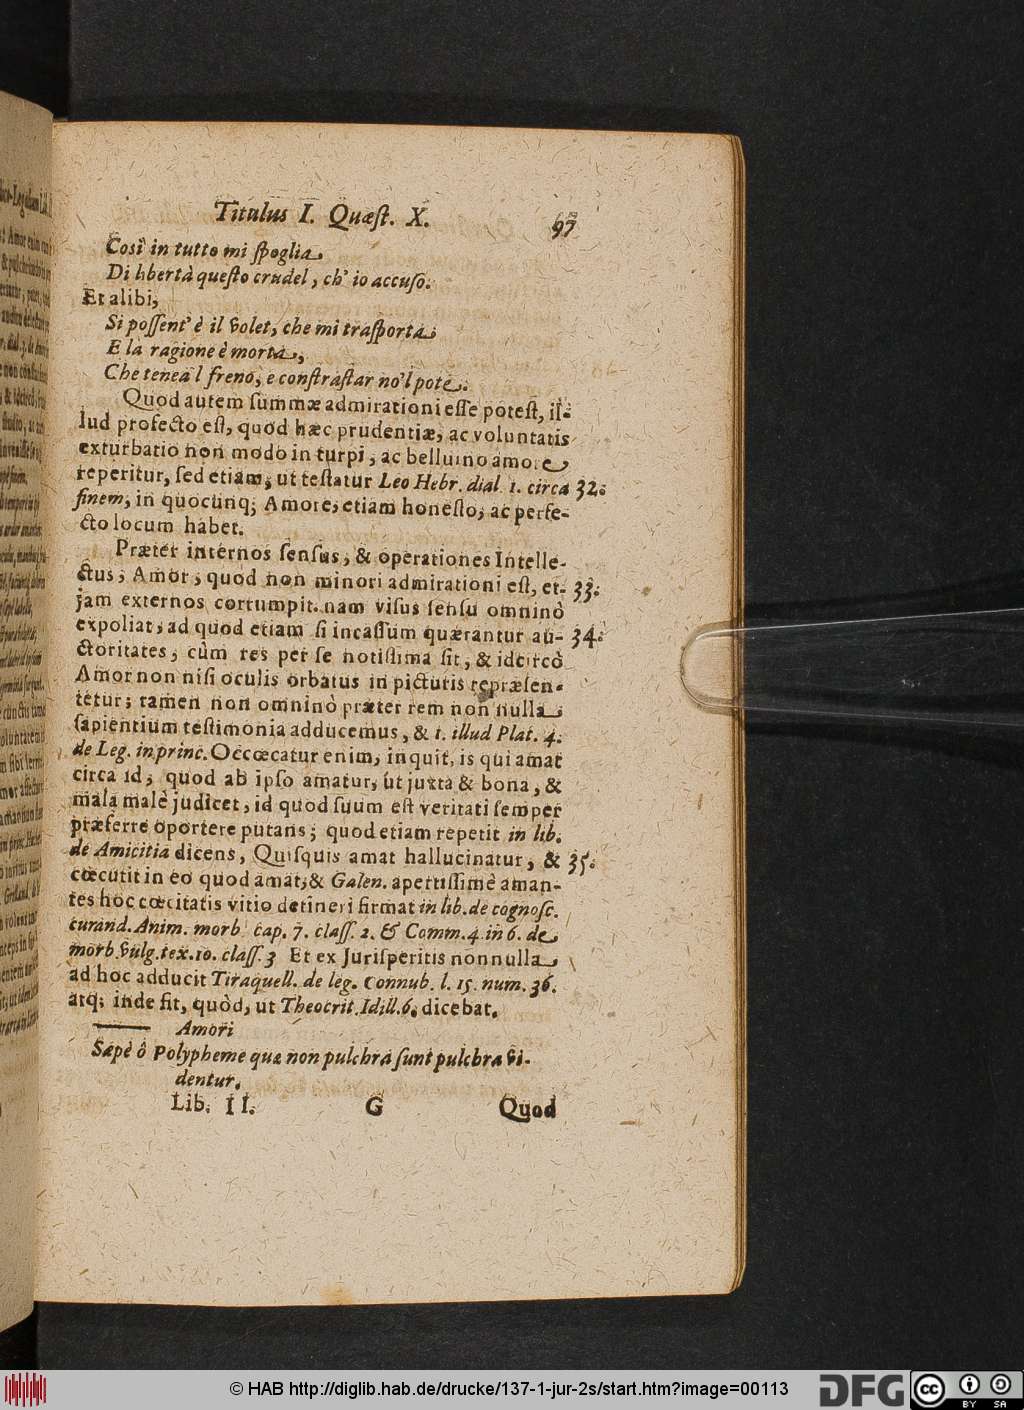 Titulus I. Quæst. X. 97
Così in tutto mi ſpoglia
Di libertà queſto crudel, ch' io accuſo.
Et alibi,
Si poſſent' è il volet, che mi traſporta;
E la ragione è morta,
Che tenea'l freno, e conſtraſtar no'l pote.
Quod autem ſummæ admirationi eſſe poteſt, il-
lud profecto eſt, quod hæc prudentiæ, ac voluntatis
exturbatio non modo in turpi, ac belluino amore
reperitur, ſed etiam, ut teſtatur Leo Hebr. dial. 1. circa 32.
finem, in quocunq; Amore, etiam honeſto, ac perfe-
cto locum habet.
Præter internos ſenſus, & operationes Intelle-
ctus, Amor, quod non minori admirationi eſt, et- 33.
jam externos corrumpit. nam viſus ſenſu omninò
expoliat, ad quod etiam ſi incaſſum quærantur au- 34.
ctoritates, cùm res per ſe notiſſima ſit, & idcircò
Amor non niſi oculis orbatus in picturis repræſen-
tetur; tamen non omninò præter rem non nulla
ſapientium teſtimonia adducemus, & 1. illud Plat. 4.
de Leg. in princ. Occœcatur enim, inquit, is qui amat
circa id, quod ab ipſo amatur, ut juxta & bona, &
mala malè judicet, id quod ſuum eſt veritati ſemper
præferre oportere putans; quod etiam repetit in lib.
de Amicitia dicens, Quiſquis amat hallucinatur, & 35.
cœcutit in eo quod amat; & Galen. apertiſſimè aman-
tes hoc cœcitatis vitio detineri firmat in lib. de cognoſc.
curand. Anim. morb. cap. 7. claſſ. 2. & Comm. 4. in 6. de
morb. vulg. tex. 10. claſſ. 3 Et ex Juriſperitis nonnulla
ad hoc adducit Tiraquell. de leg. Connub. l. 15. num. 36.
atq; inde fit, quòd, ut Theocrit. Idill. 6. dicebat.
Amori
Sæpè ô Polypheme quæ non pulchra ſunt pulchra vi-
dentur.
Lib. II. G Quod
© HAB http://diglib.hab.de/drucke/137-1-jur-2s/start.htm?image=00113
DFG
CC BY SA